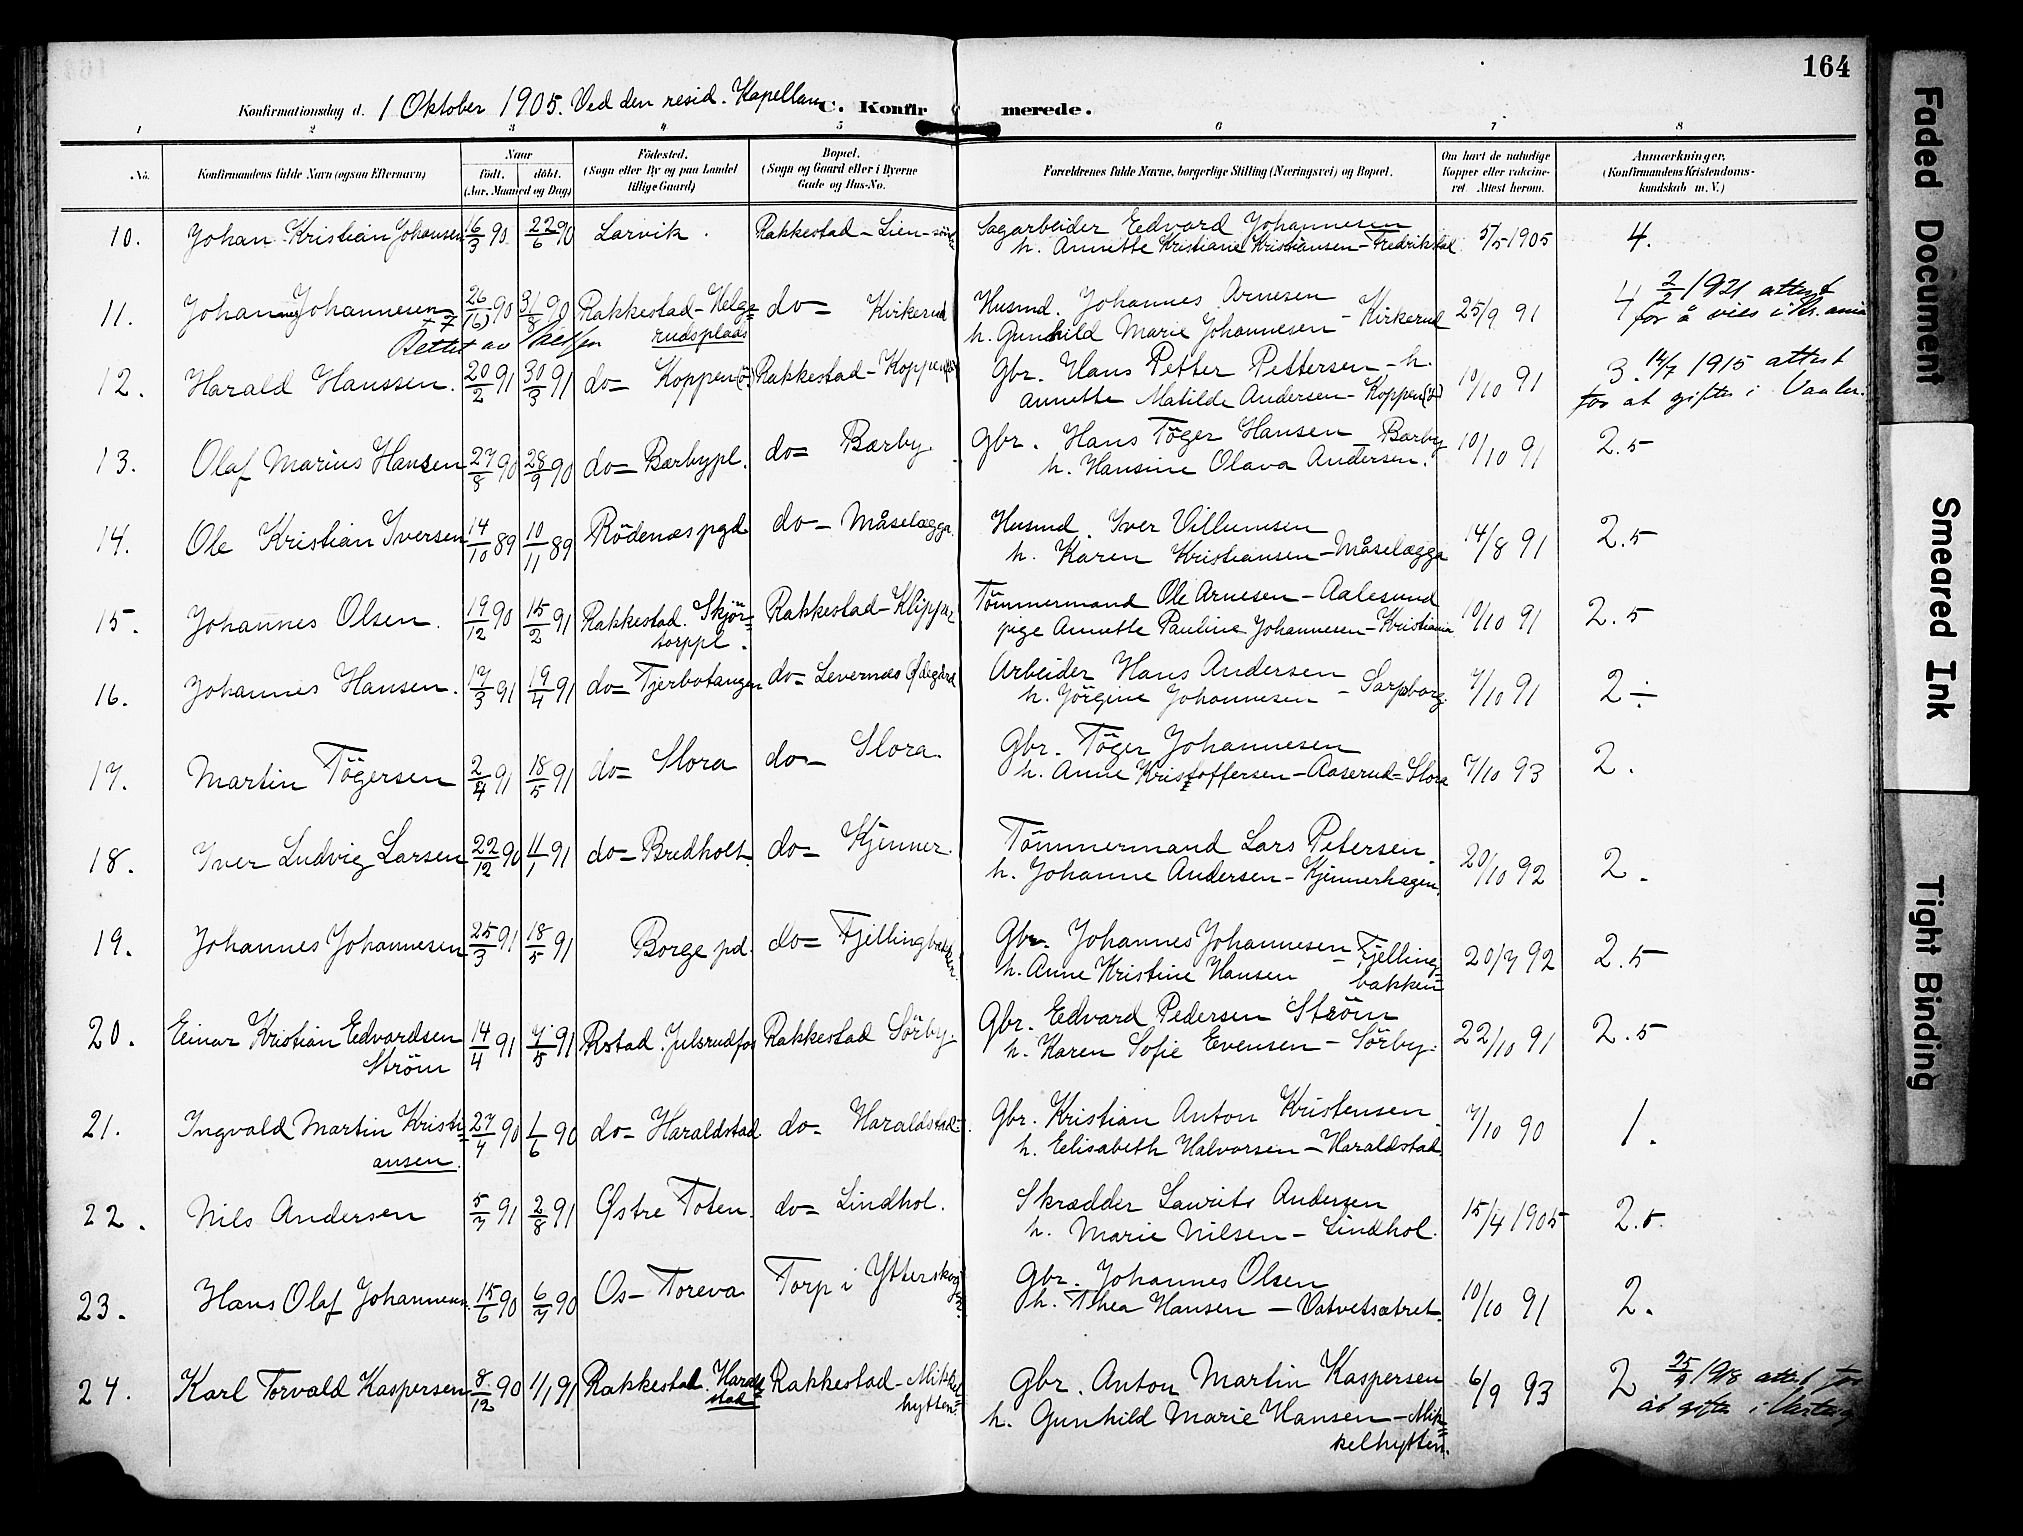 164
Konfirmationsdag d. 1 Oktober 1905. Ved den resid. Kapellan C. Konfirmerede.
1 2 3 4 5 6 7 8
No. Konfirmandens fulde Navn (ogsaa Efternavn) Naar födt. döbt. (Aar, Maaned og Dag) Födested. (Sogn eller By og paa Landet tillige Gaard) Bopæl. (Sogn og Gaard eller i Byerne Gade og Hus-No. Forældrenes fulde Navne, borgerlige Stilling (Næringsvei) og Bopæl. Om havt de naturlige Kopper eller vaccineret. Attest herom. Anmærkninger. (Konfirmandens Kristendomskundskab m. V.)
10. Johan Kristian Johansen 16/3 90 22/6 90 Larvik. Rakkestad - Lien Sagarbeider Edvard Johannesen
h. Annette Kristiane Kristiansen - Fredrikstad 5/5 1905 4.
11. Johan Johannesen 26/6 90 31/8 90 Rakkestad - Helgerudsplads do= Kirkerud Husmd. Johannes Arnesen
h. Gunhild Marie Johannesen - Kirkerud 25/9 91 4 2/2 1921 attest
for å vies i Kr.ania
Rettet av
12. Harald Hanssen. 20/2 91 30/3 91 do= Koppen (ö) Rakkestad - Koppen Gbr. Hans Petter Pettersen - h.
Annette Matilde Andersen - Koppen 10/10 91 3. 14/7 1915 attest
for at giftes i Vaaler.
13. Olaf Marius Hansen 27/8 90 28/9 90 do= Bærbypl. do= Bærby Gbr. Hans Töger Hansen - Bærby
h. Hansine Olava Andersen. 10/10 91 2.5
14. Ole Kristian Iversen 14/10 89 10/11 89 Rödenæs pgd. do - Måselægga. Husmd. Iver Villumsen
h. Karen Kristiansen - Måselægga 14/8 91 2.5
15. Johannes Olsen. 19/12 90 15/2 91 Rakkestad. Skjörtorppl. Rakkestad - Klipper Tömmermand Ole Arnesen - Aalesund
pige Annette Pauline Johannesen - Kristiania 10/10 91 2.5
16. Johannes Hansen. 17/3 91 19/4 91 do= Tjerbotangen do= Levernæs Ødegård Arbeider Hans Andersen
h. Jörgine Johannesen - Sarpsborg. 7/10 91 2 ÷
17. Martin Tögersen 2/4 91 18/5 91 do= Slora do - Slora. Gbr. Töger Johannesen
h. Anne Kristoffersen - Aaserud - Slora 7/10 93 2.
18. Iver Ludvig Larsen 22/12 90 11/1 91 do= Bredholt do= Kjenner. Tömmermand Lars Petersen.
h. Johanne Andersen - Kjennerhagen. 20/10 92 2.
19. Johannes Johannesen 25/3 91 18/5 91 Borge pd. do= Fjellingbakken Gbr. Johannes Johannesen
h. Anne Kristine Hansen - Fjellingbakken 20/7 92 2.5
20. Einar Kristian Edvardsen Ström 14/4 91 7/5 91 Rstad. Julsrudfos Rakkestad Sörby Gbr. Edvard Pedersen Ström
h. Karen Sofie Evensen - Sörby. 22/10 91 2.5
21. Ingvald Martin Kristiansen. 27/4 90 1/6 90 do= Haraldstad. do= Haraldstad. Gbr. Kristian Anton Kristensen
h. Elisabeth Halvorsen - Haraldstad 7/10 90 1.
22. Nils Andersen 5/7 91 2/8 91 Østre Toten. do= Lindhol. Skrædder Laurits Andersen
h. Marie Nilsen - Lindhol. 15/4 1905 2.5.
23. Hans Olaf Johannesen. 15/6 90 6/7 90 Os - Toreva Torp i Ytterskogen Gbr. Johannes Olsen
h. Thea Hansen - Vatvetsætret. 10/10 91 2.
24. Karl Torvald Kaspersen 8/12 90 1/1 91 Rakkestad. Haraldstad Rakkestad - Mikkelhytten. Gbr. Anton Martin Kaspersen
h. Gunhild Marie Hansen - Mikkelhytten. 6/9 93 2 attest for
at gifte i
Faded Document
Smeared Ink
Tight Binding